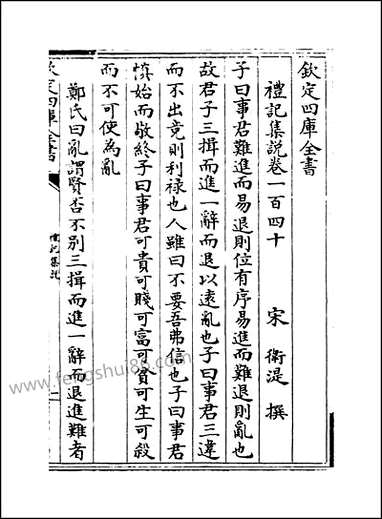 欽定四庫全書
禮記集説卷一百四十
宋 衛湜 撰
子曰事君難進而易退則位有序易進而難退則亂也
故君子三揖而進一辭而退以遠亂也子曰事君三違
而不出竟則利禄也人雖曰不要吾弗信也子曰事君
慎始而敬終子曰事君可貴可賤可富可貧可生可殺
而不可使為亂
鄭氏曰亂謂賢否不别三揖而進一辭而退進難者
欽定四庫全書
禮記集説
www.fengshui86.com